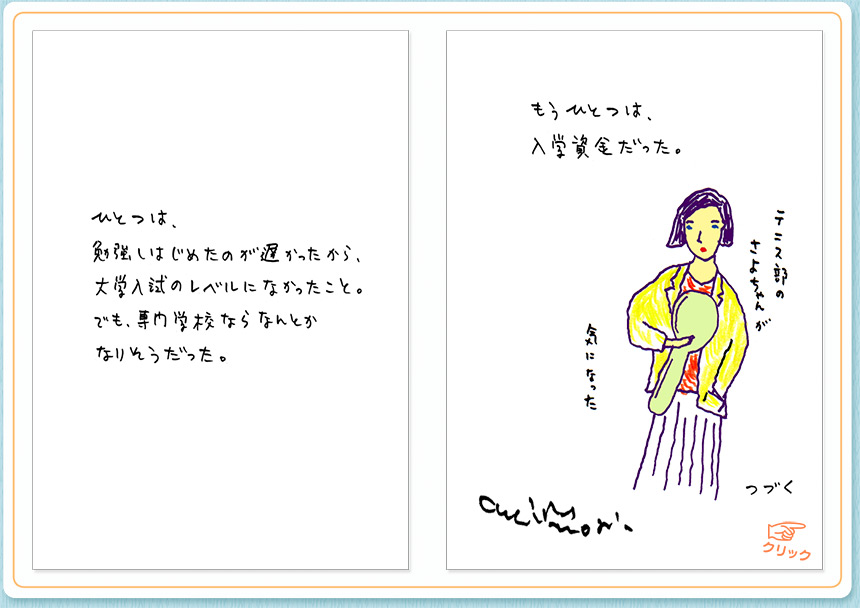 ひとつは、
勉強しはじめたのが遅かったから、
大学入試のレベルになかったこと。
でも、専門学校ならなんとか
なりそうだった。
もうひとつは、
入学資金だった。
テニス部の
さよちゃんが
気になった
つづく
クリック